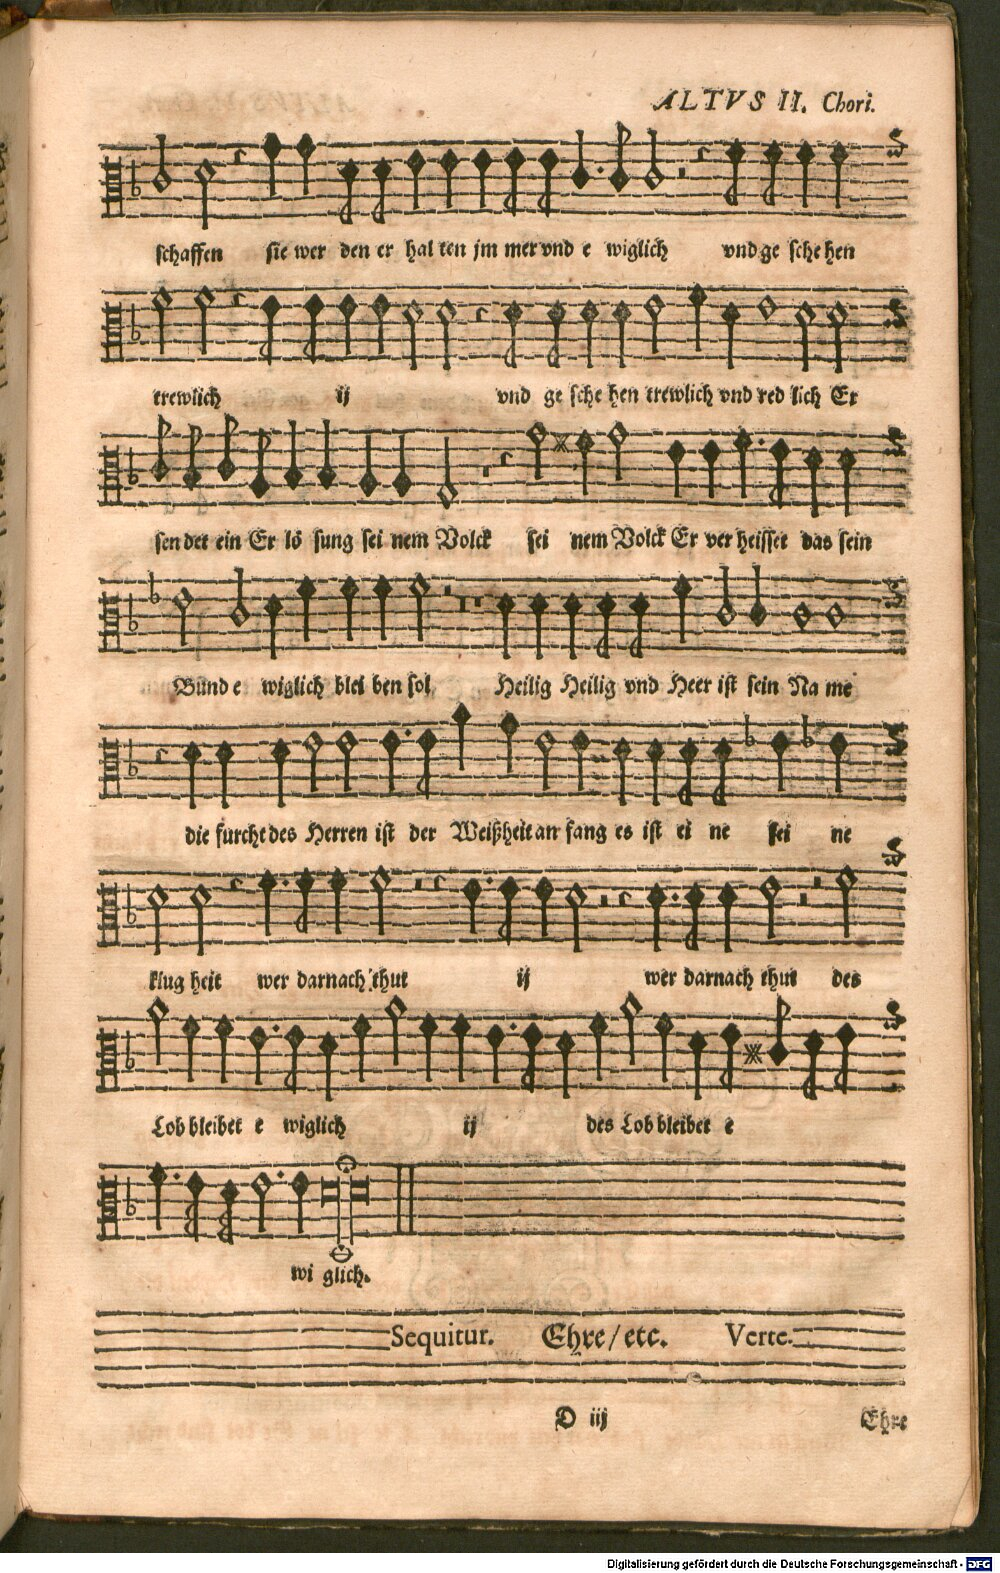 ALTVS II. Chori.
schaffen sie wer den er hal ten jm mer vnd e wiglich vnd ge sche hen
trewlich ij vnd ge sche hen trewlich vnd red lich Er
sen det ein Er lö sung sei nem Volck sei nem Volck Er ver heisset das sein
Bund e wiglich blei ben sol Heilig Heilig vnd Heer ist sein Na me
die furcht des Herren ist der Weißheit an fang es ist ei ne fei ne
klug heit wer darnach thut ij wer darnach thut des
Lob bleibet e wiglich ij des Lob bleibet e
wi glich.
Sequitur. Ehre/etc. Verte.
D iij Ehre
Digitalisierung gefördert durch die Deutsche Forschungsgemeinschaft - DFG